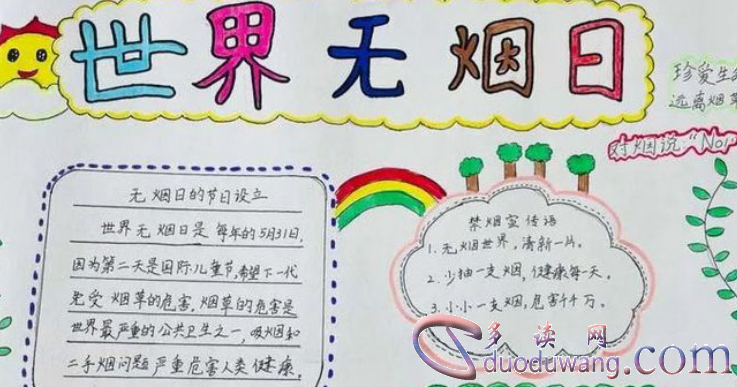 世界无烟日
珍爱生
远离烟草
对烟说："No!"
无烟日的节日设立
世界无烟日是每年的5月31日,
因为第二天是国际儿童节,希望下一代
免受烟草的危害,烟草的危害是
世界最严重的公共卫生之一,吸烟和
二手烟问题严重危害人类健康。
禁烟宣传语
1.无烟世界,清新一片。
2.少抽一支烟,健康每一天。
3.小小一支烟,危害千千万。
多读网
duoduwang.com